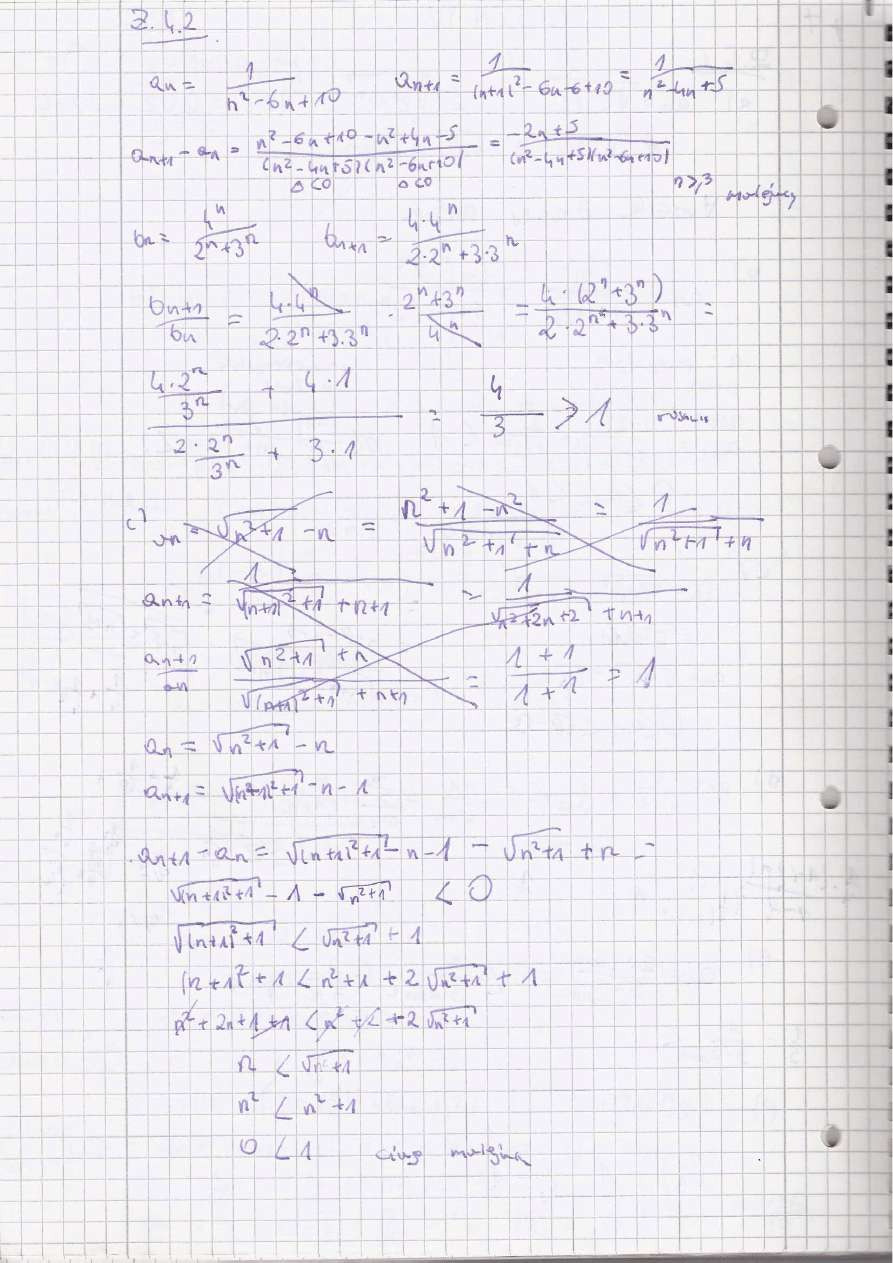 Z. 4.2
an = 1/(n²-6n+10) an+1 = 1/((n+1)²-6n-6+10) = 1/(n²-4n+5)
an+1 - an = (n²-6n+10-n²+4n-5)/((n²-4n+5)(n²-6n+10)) = (-2n+5)/((n²-4n+5)(n²-6n+10))
Δ<0 Δ<0
n≥3 malejący
bn = 4ⁿ/(2ⁿ+3ⁿ) bn+1 = 4·4ⁿ/(2·2ⁿ+3·3ⁿ)
bn+1/bn = 4·4ⁿ/(2·2ⁿ+3·3ⁿ) · (2ⁿ+3ⁿ)/4ⁿ = 4·(2ⁿ+3ⁿ)/(2·2ⁿ+3·3ⁿ) =
(4·2ⁿ/3ⁿ + 4·1)/(2·2ⁿ/3ⁿ + 3·1) = 4/3 > 1
c) = √(n²+1) - n = (n²+1-n²)/(√(n²+1)+n) = 1/(√(n²+1)+n)
an+1 = 1/(√((n+1)²+1)+n+1) = 1/(√(n²+2n+2)+n+1)
an+1/an (√(n²+1)+n)/(√((n+1)²+1)+n+1) = (1+1)/(1+1) = 1
an = √(n²+1) - n
an+1 = √((n+1)²+1) - n - 1
an+1 - an = √((n+1)²+1) - n - 1 - √(n²+1) + n =
√((n+1)²+1) - 1 - √(n²+1) < 0
√((n+1)²+1) < √(n²+1) + 1
(n+1)² + 1 < n²+1 + 2√(n²+1) + 1
n² + 2n+1+1 < n² + 2 + 2√(n²+1)
n < √(n²+1)
n² < n²+1
0 < 1 ciąg malejący